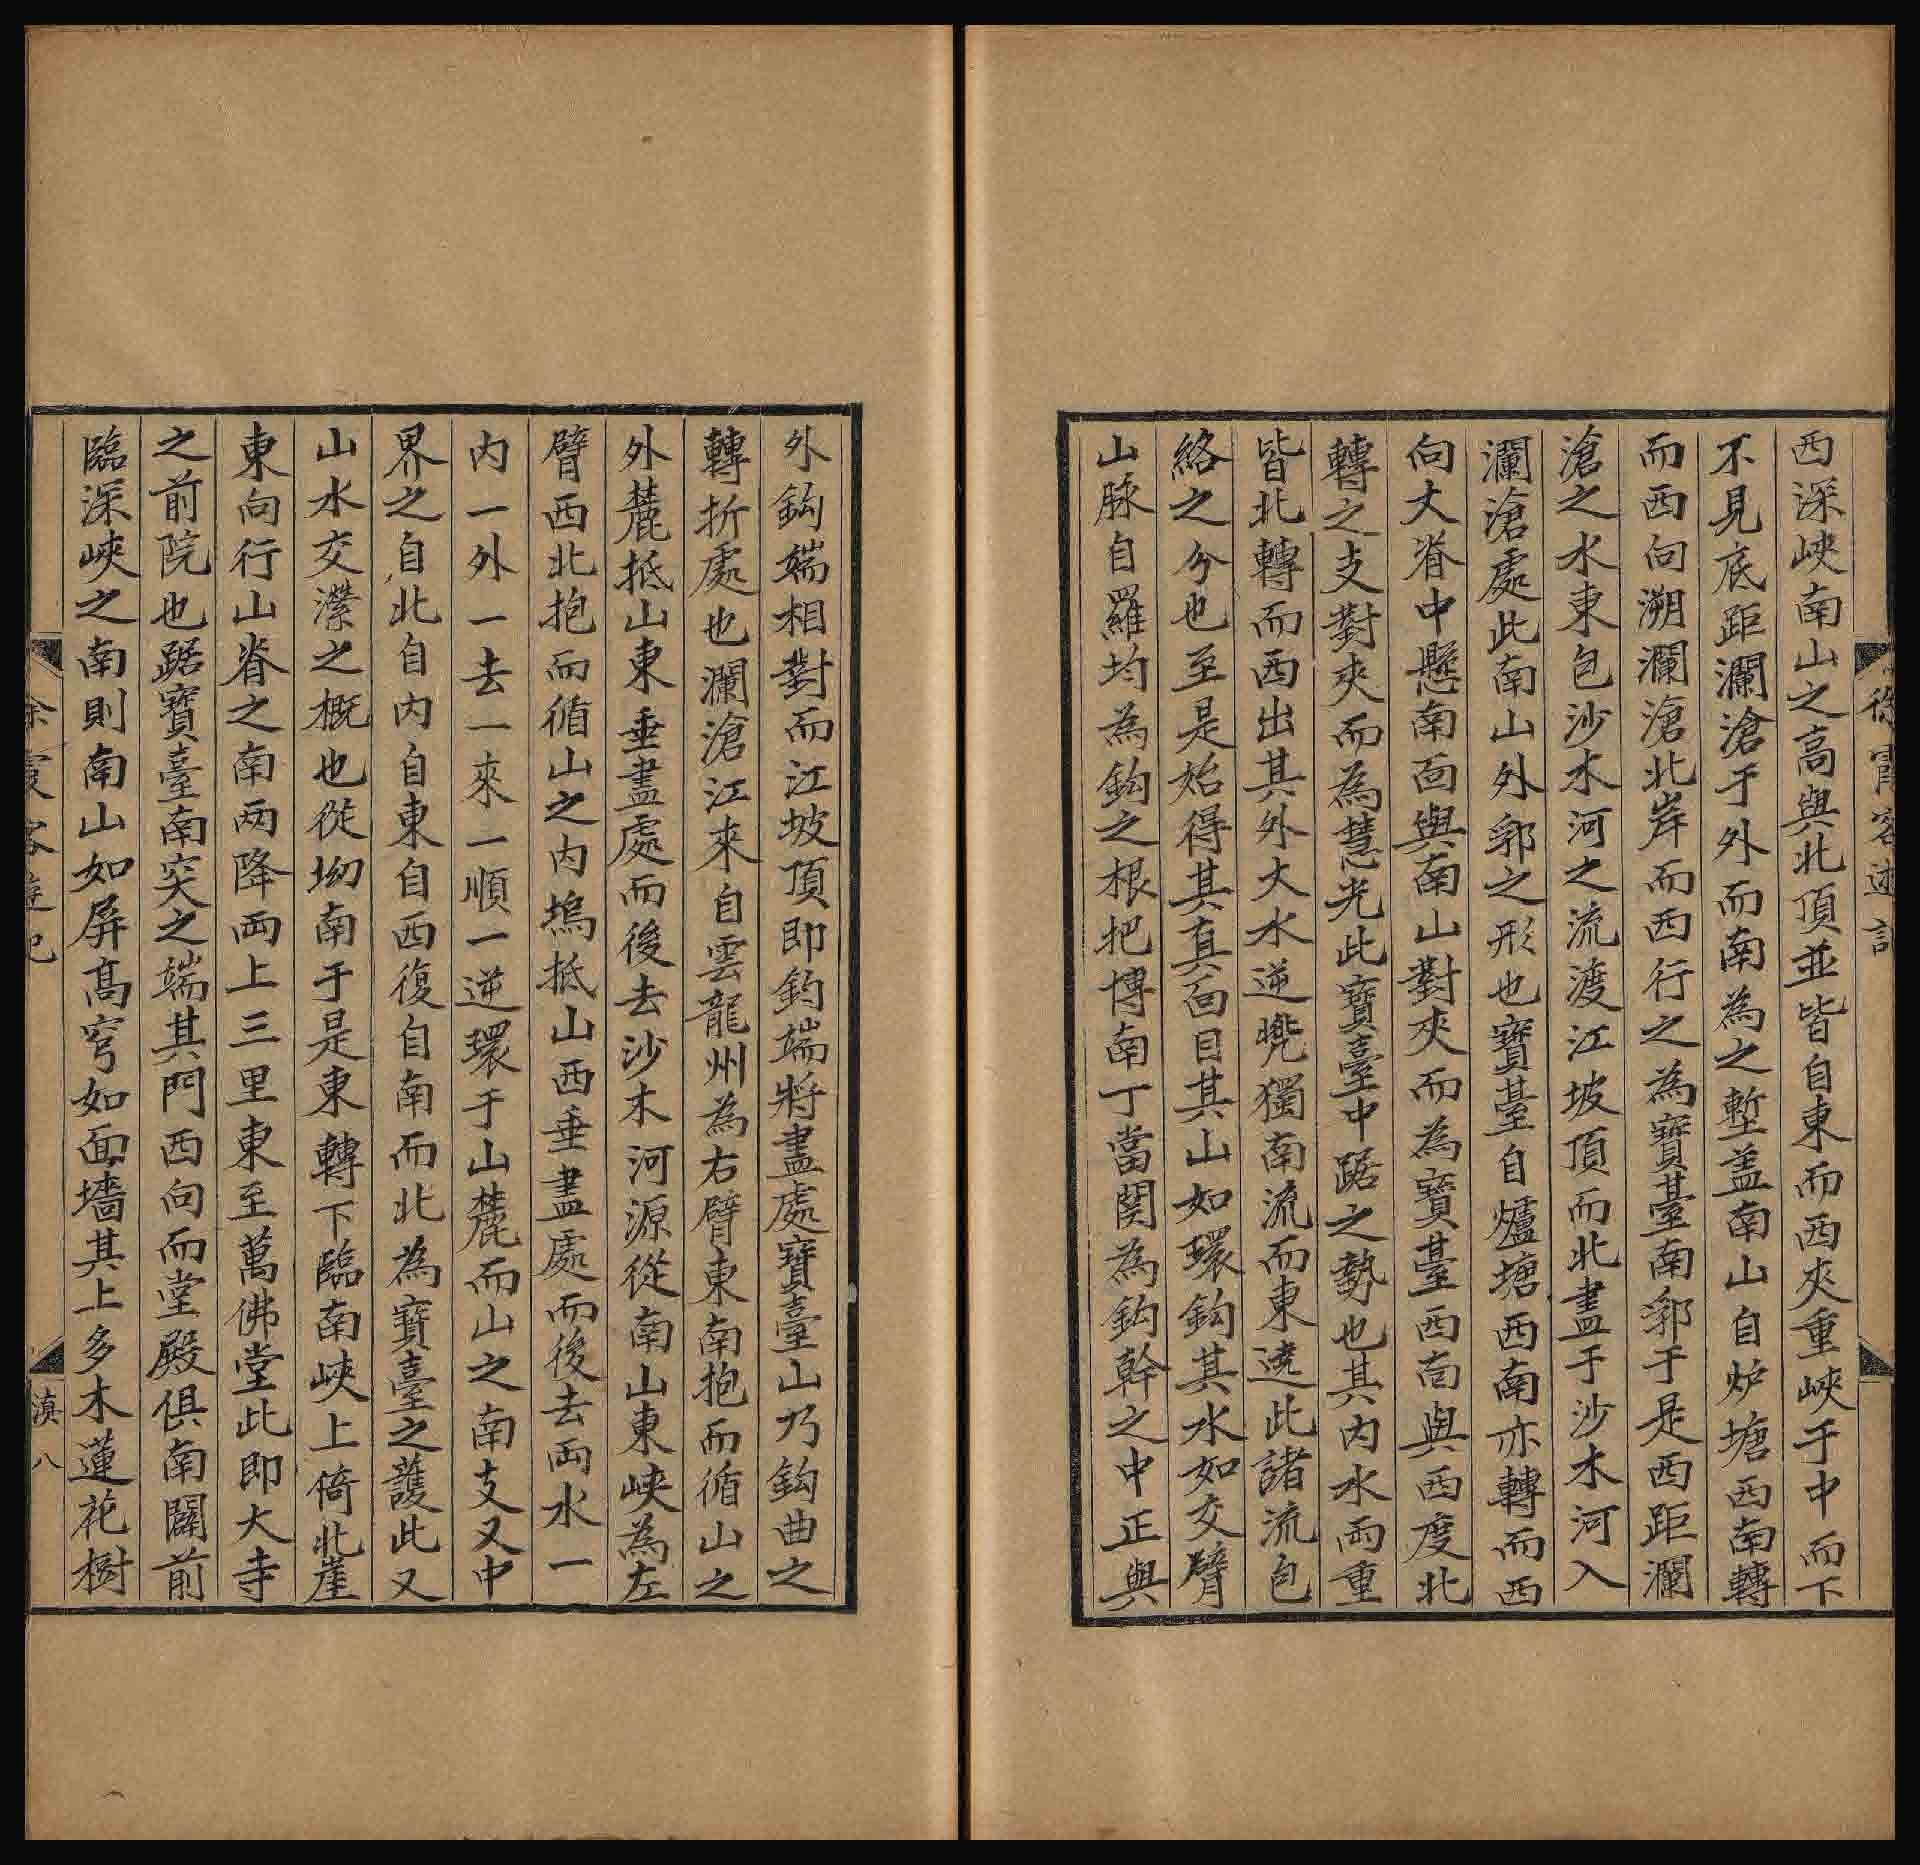 西深峽南山之高與北頂並皆自東而西夾重峽于中而下
不見底距瀾滄于外而南為之塹盖南山自炉塘西南轉
而西向溯瀾滄北岸而西行之為寶臺南郛于是西距瀾
滄之水東包沙水河之流渡江坡頂而北盡于沙木河入
瀾滄處此南山外郛之形也寶臺自爐塘西南亦轉而西
向大脊中懸南面與南山對夾而為寶臺西南與西度北
轉之支對夾而為慧光此寶臺中踞之勢也其内水兩重
皆北轉而西出其外大水逆兠獨南流而東遶此諸流包
絡之分也至是始得其真面目其山如環鈎其水如交臂
山脉自羅均為鈎之根把博南丁當関為鈎幹之中正與
外鈎端相對而江坡頂即鈎端將盡處寶臺山乃鈎曲之
轉折處也瀾滄江來自雲龍州為右臂東南抱而循山之
外麓抵山東垂盡處而後去沙木河源從南山東峽為左
臂西北抱而循山之内塢抵山西垂盡處而後去兩水一
内一外一去一來一順一逆環于山麓而山之南支又中
界之自北自内自東自西復自南而北為寶臺之護此又
山水交瀠之概也從坳南于是東轉下臨南峽上倚北崖
東向行山脊之南兩降兩上三里東至萬佛堂此即大寺
之前院也踞寶臺南突之端其門西向而堂殿俱南闢前
臨深峽之南則南山如屏高穹如面墻其上多木蓮花樹
徐霞客遊記
滇八